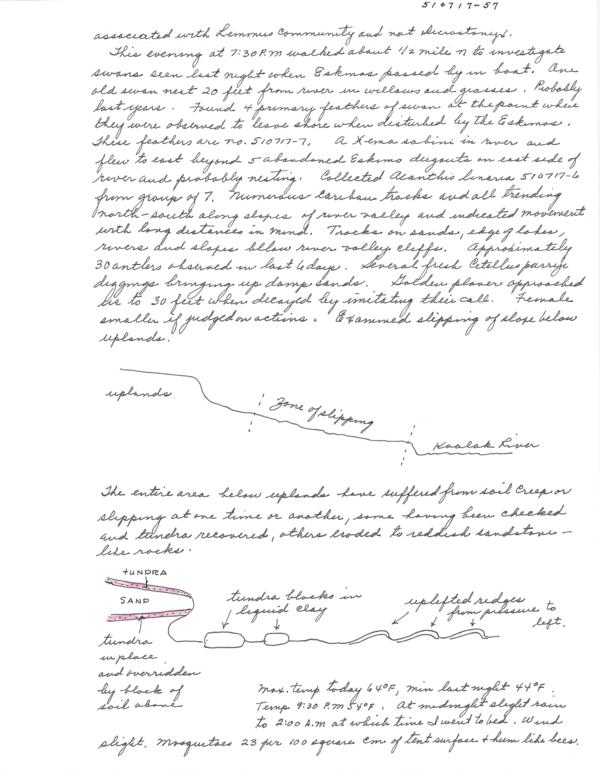 510717-57
associated with Lemmus community and not Dicrostonyx.
This evening at 7:30 P.M walked about 1/2 mile N to investigate
swans seen last night when Eskimos passed by in boat. One
old swan nest 20 feet from river in willows and grasses. Probably
last years. Found 4 primary feathers of swan at the point where
they were observed to leave shore when disturbed by the Eskimos.
These feathers are no. 510717-7. A Xema sabini in river and
flew to east beyond 5 abandoned Eskimo dugouts on east side of
river and probably nesting. Collected Acanthis linaria 510717-6
from group of 7. Numerous caribou tracks and all trending
north-south along slopes of river valley and indicated movement
with long distances in mind. Tracks on sands, edge of lakes,
rivers and slopes bllow river valley cliffs. Approximately
30 antlers observed in last 6 days. Several fresh Citellus parryi
diggings bringing up damp sands. Golden plover approached
us to 30 feet when decayed by imitating their call. Female
smaller if judged on actions. Examined slipping of slope below
uplands.
uplands
Zone of slipping
Kaalak River
The entire area below uplands have suffered from soil creep or
slipping at one time or another, some having been checked
and tundra recovered, others eroded to reddish sandstone-
like rocks.
tUNDRA
SAND
tundra blocks in
liquid clay
uplifted ridges
from pressure to
left.
tundra
in place
and overridden
by block of
soil above
Max. temp today 64°F, min last night 44°F.
Temp 9:30 P.M 54°F. At midnight slight rain
to 2:00 A.M at which time I went to bed. Wind
slight. Mosquitoes 23 per 100 square cm of tent surface & hum like bees.